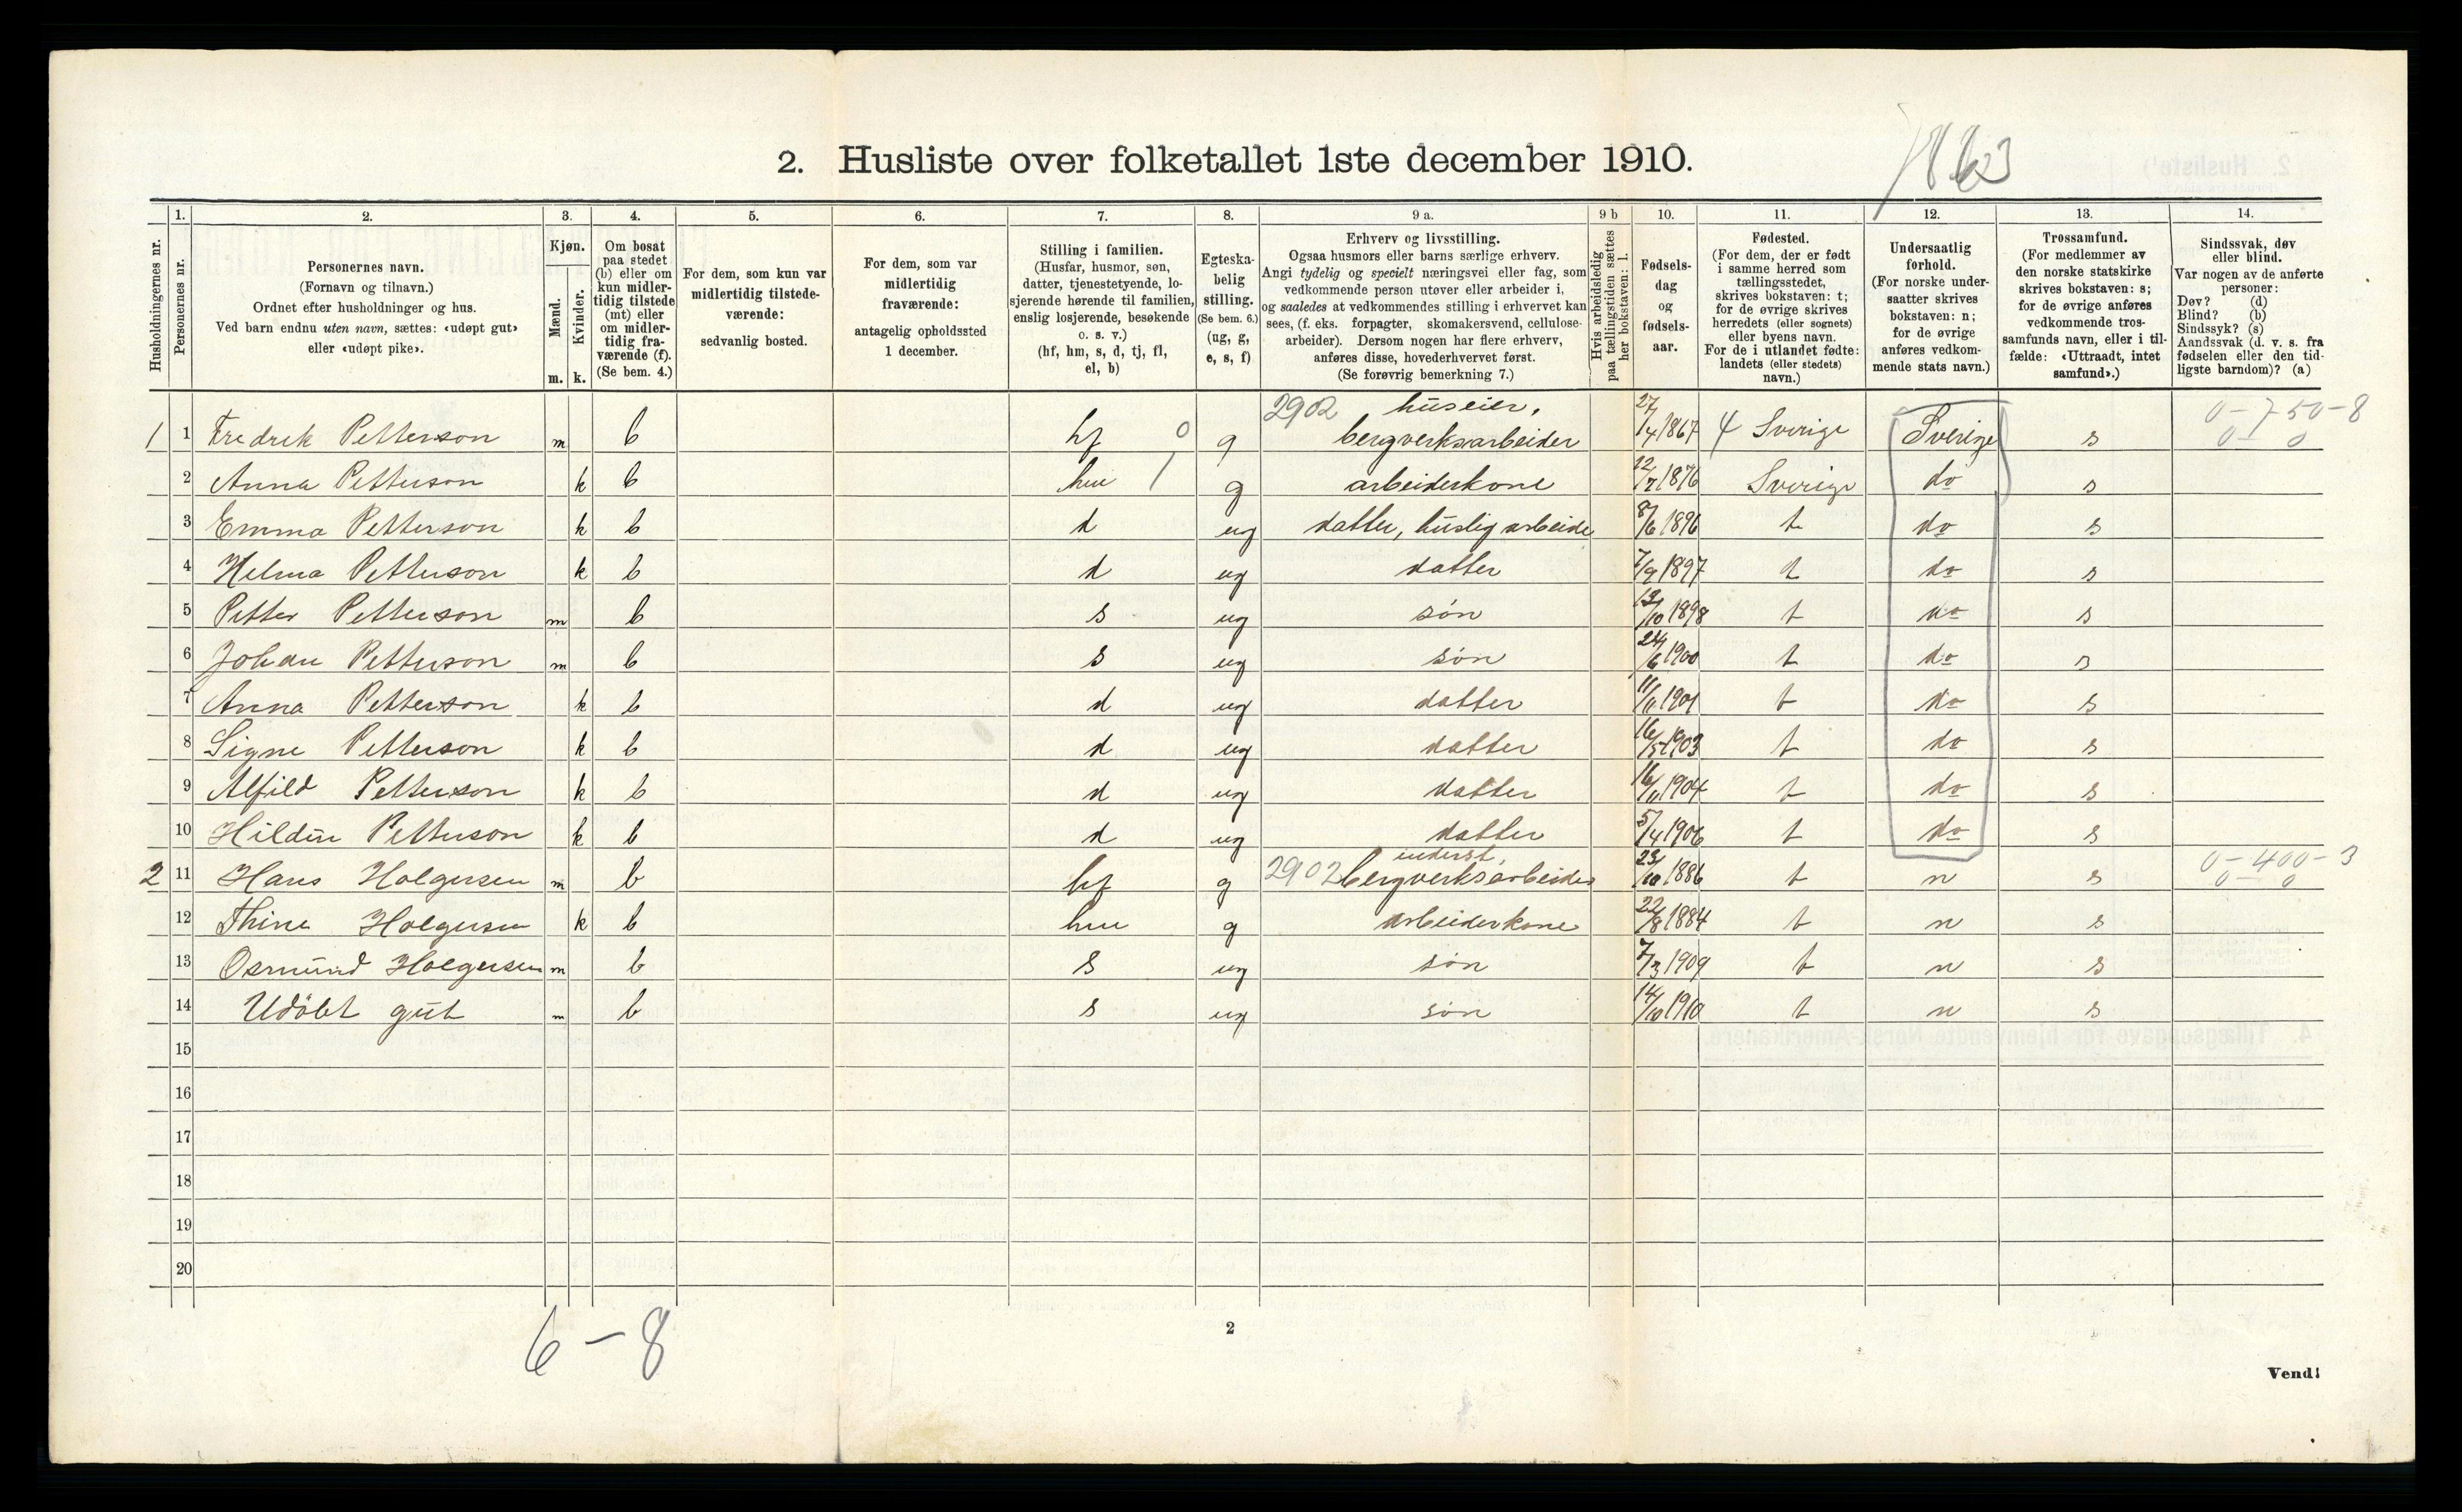 1863
2. Husliste over folketallet 1ste december 1910.
Husholdningernes nr.
1.
Personernes nr.
2.
Personernes navn.
(Fornavn og tilnavn.)
Ordnet efter husholdninger og hus.
Ved barn endnu uten navn, sættes: «udøpt gut»
eller «udøpt pike».
3.
Kjøn.
Mænd.
Kvinder.
m. k.
4.
Om bosat
paa stedet
(b) eller om
kun midler-
tidig tilstede
(mt) eller
om midler-
tidig fra-
værende (f).
(Se bem. 4.)
5.
For dem, som kun var
midlertidig tilstede-
værende:
sedvanlig bosted.
6.
For dem, som var
midlertidig
fraværende:
antagelig opholdssted
1 december.
7.
Stilling i familien.
(Husfar, husmor, søn,
datter, tjenestetyende, lo-
sjerende hørende til familien,
enslig losjerende, besøkende
o. s. v.)
(hf, hm, s, d, tj, fl,
el, b)
8.
Egteska-
belig
stilling.
(Se bem. 6.)
(ug, g,
e, s, f)
9 a.
Erhverv og livsstilling.
Ogsaa husmors eller barns særlige erhverv.
Angi tydelig og specielt næringsvei eller fag, som
vedkommende person utøver eller arbeider i,
og saaledes at vedkommendes stilling i erhvervet kan
sees, (f. eks. forpagter, skomakersvend, cellulose-
arbeider). Dersom nogen har flere erhverv,
anføres disse, hovederhvervet først.
(Se forøvrig bemerkning 7.)
9 b
Hvis arbeidsledig
paa tællingstiden sættes
her bokstaven: l.
10.
Fødsels-
dag
og
fødsels-
aar.
11.
Fødested.
(For dem, der er født
i samme herred som
tællingsstedet,
skrives bokstaven: t;
for de øvrige skrives
herredets (eller sognets)
eller byens navn.
For de i utlandet fødte:
landets (eller stedets)
navn.)
12.
Undersaatlig
forhold.
(For norske under-
saatter skrives
bokstaven: n;
for de øvrige
anføres vedkom-
mende stats navn.)
13.
Trossamfund.
(For medlemmer av
den norske statskirke
skrives bokstaven: s;
for de øvrige anføres
vedkommende tros-
samfunds navn, eller i til-
fælde: «Uttraadt, intet
samfund».)
14.
Sindssvak, døv
eller blind.
Var nogen av de anførte
personer:
Døv? (d)
Blind? (b)
Sindssyk? (s)
Aandssvak (d. v. s. fra
fødselen eller den tid-
ligste barndom)? (a)
2902 huseier, 0-750-8
1 1 Fredrik Petterson m b hf 0 g bergverksarbeider 27/4 1867 4 Sverige Sverige s 0- 0
2 Anna Petterson k b hm 1 g arbeiderkone 12/7 1876 Sverige do s
3 Emma Petterson k b d ug datter, huslig arbeide 8/6 1896 t do s
4 Helma Petterson k b d ug datter 7/9 1897 t do s
5 Petter Petterson m b s ug søn 13/10 1898 t do s
6 Johan Petterson m b s ug søn 24/6 1900 t do s
7 Anna Petterson k b d ug datter 11/11 1901 t do s
8 Signe Petterson k b d ug datter 16/5 1903 t do s
9 Alfild Petterson k b d ug datter 16/11 1904 t do s
10 Hildur Petterson k b d ug datter 5/4 1906 t do s
inderst, 0-400-3
2 11 Hans Holgersen m b hf g 2902 bergverksarbeider 23/10 1886 t n s 0- 0
12 Thine Holgersen k b hm g arbeiderkone 22/8 1884 t n s
13 Osmund Holgersen m b s ug søn 7/3 1909 t n s
14 Udöbt gut m b s ug søn 14/10 1910 t n s
15
16
17
18
19
20
6-8
2
Vend!